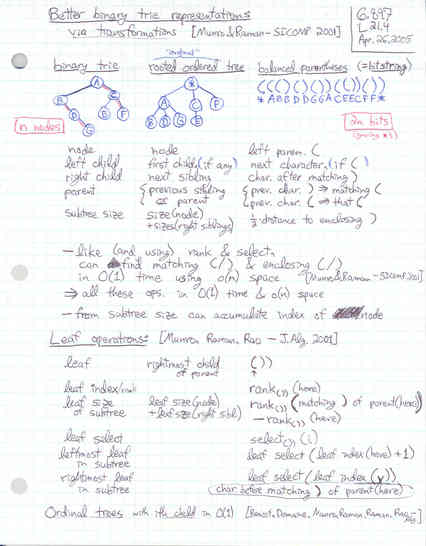 Better binary trie representations
via transformations [Munro & Raman - SICOMP 2001]
6.897
L 21.4
Apr. 26, 2005
"ordinal"
binary trie rooted ordered tree balanced parentheses (= bitstring)
A
B C
D E F
G
*
A C F
B D G E
((()()())(())())
* A B B D D G G A C E E C F F *
n nodes
2n bits
node node left paren. (
left child first child (if any) next character (if ( )
right child next sibling char. after matching )
parent { previous sibling or parent { prev. char. ) ⇒ matching (
{ prev. char. ( ⇒ that (
subtree size size(node) + sizes(right siblings) ½·distance to enclosing )
- like (and using) rank & select,
can find matching (/) & enclosing (/)
in O(1) time using o(n) space [Munro & Raman - SICOMP 2001]
⇒ all these ops. in O(1) time & o(n) space
- from subtree size can accumulate index of node
Leaf operations: [Munro, Raman, Rao - J. Alg. 2001]
leaf rightmost child of parent ())
leaf index/rank rank()) (here)
leaf size of subtree leaf size(node) + leaf size(right sibl) rank()) (matching ) of parent(here))
- rank()) (here)
leaf select select()) (i)
leftmost leaf in subtree leaf select (leaf index (here) + 1)
rightmost leaf in subtree leaf select (leaf index (
char before matching ) of parent (here)
Ordinal trees with ith child in O(1) [Benoit, Demaine, Munro, Raman, Raman, Rao -